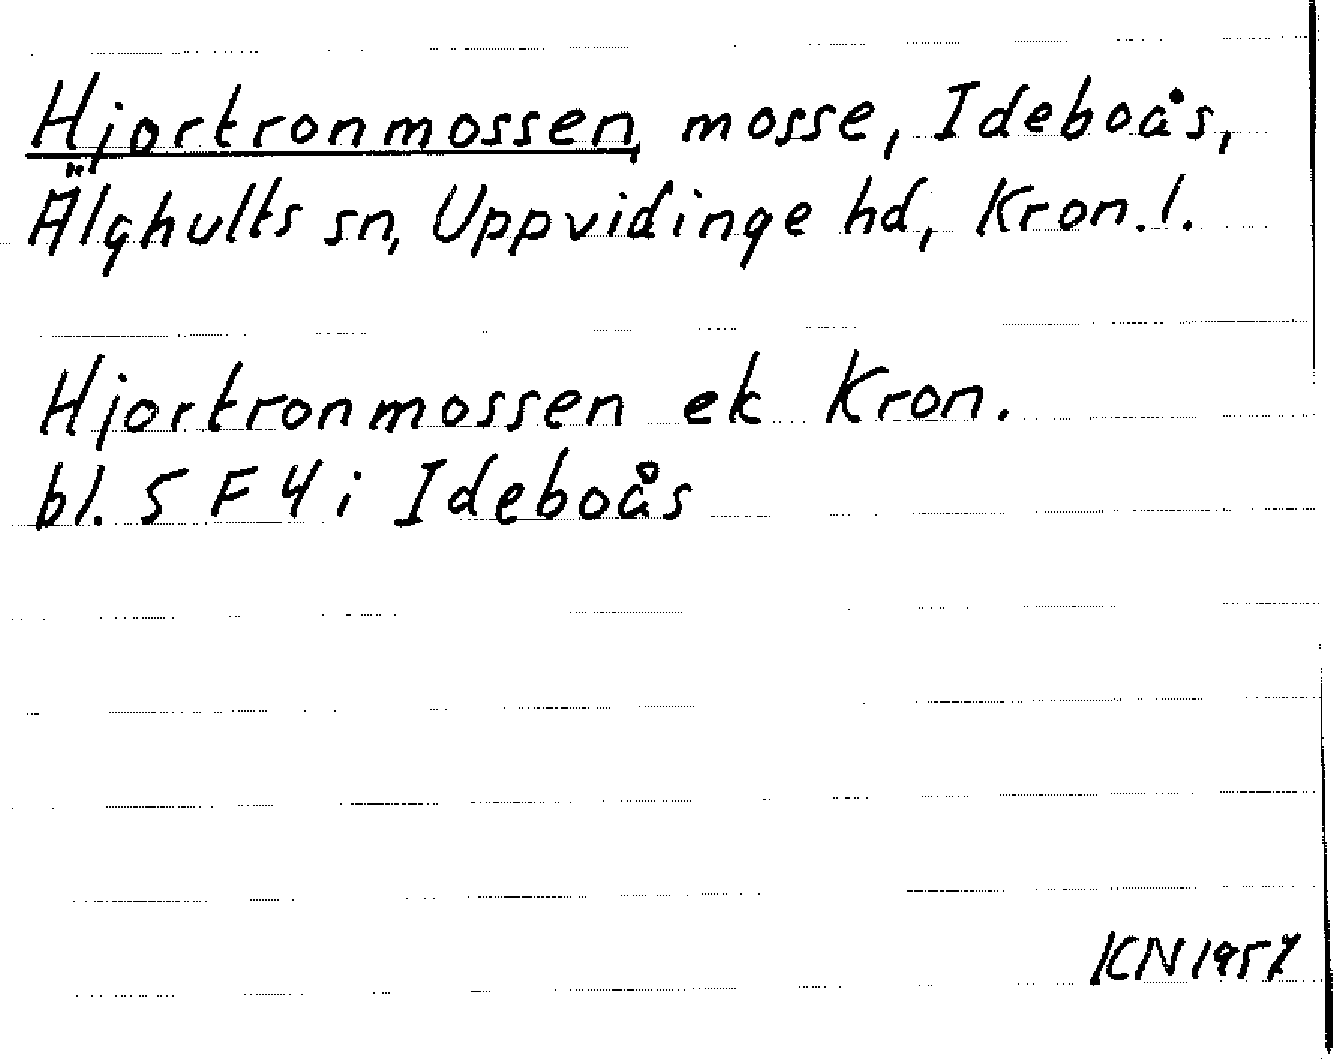 Hjortronmossen, mosse, Ideboås,
Älghults sn, Uppvidinge hd, Kron. l.
Hjortronmossen ek Kron.
bl. 5 F 4 i Ideboås
KN 1957